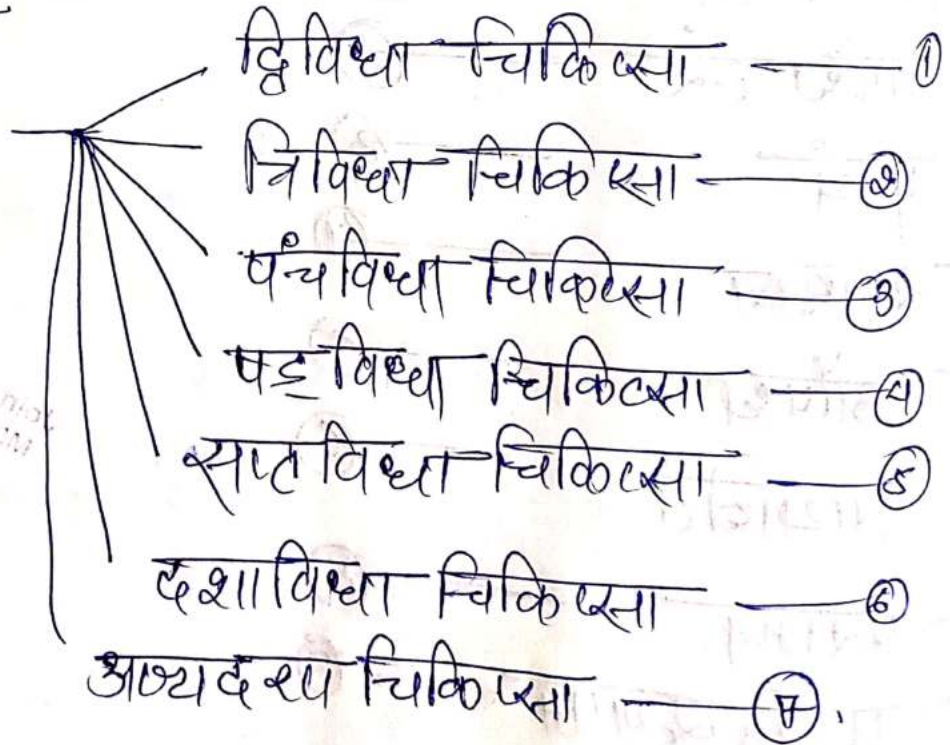 द्विविधा चिकित्सा ①
त्रिविधा चिकित्सा ②
पंचविधा चिकित्सा ③
षड् विधा चिकित्सा ④
सप्तविधा चिकित्सा ⑤
दशाविधा चिकित्सा ⑥
चिकित्सा ⑦.